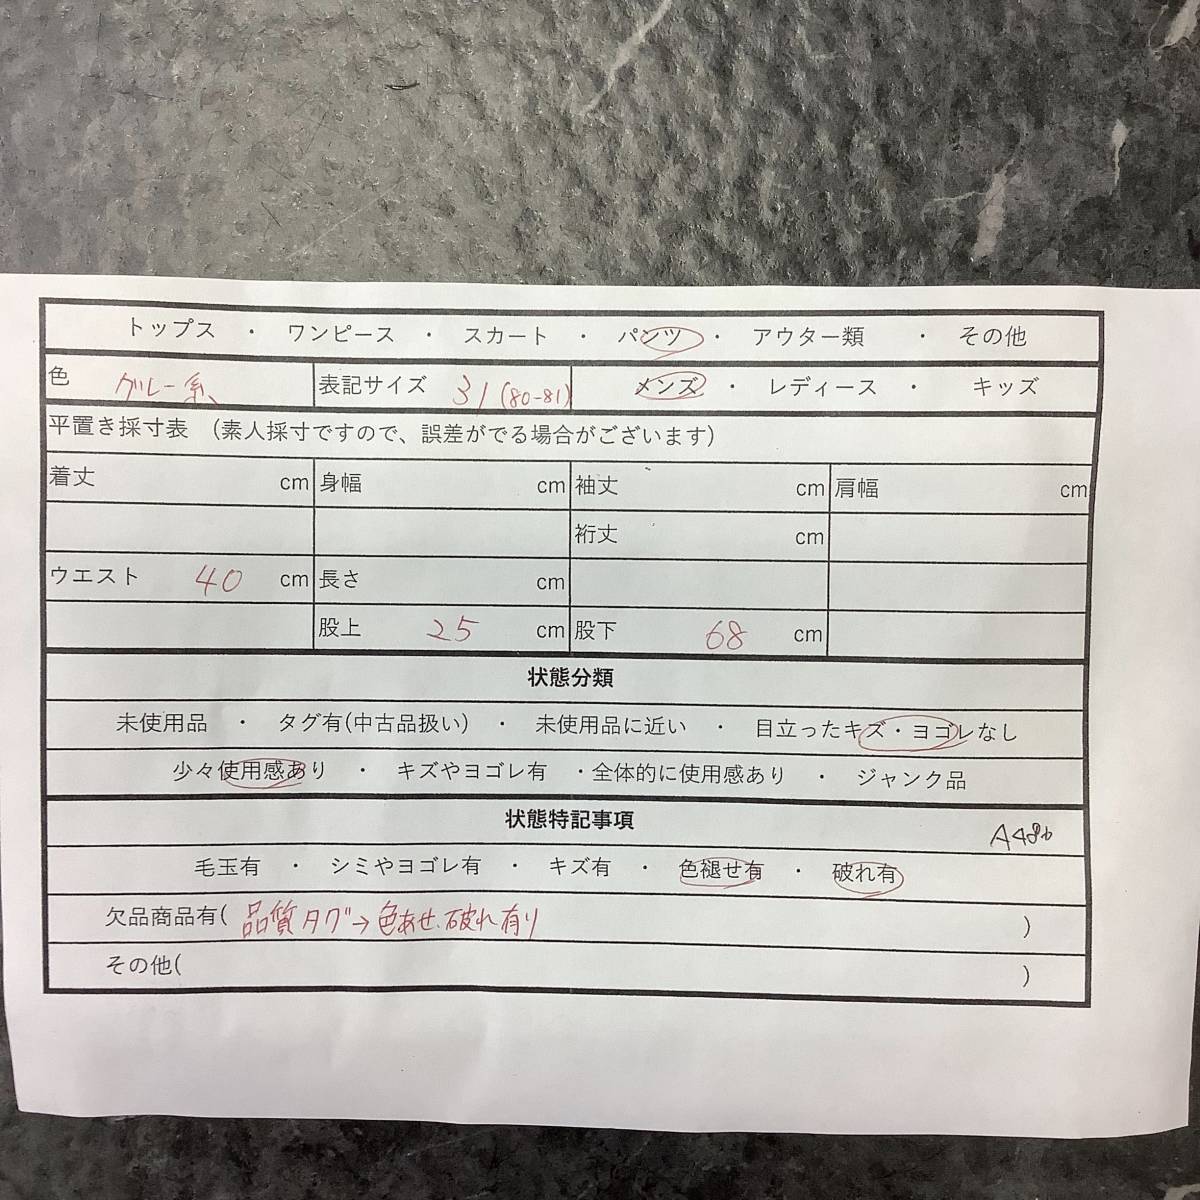 トップス ・ ワンピース ・ スカート ・ パンツ ・ アウター類 ・ その他
色 グレー系 表記サイズ 31 (80-81) メンズ ・ レディース ・ キッズ
平置き採寸表 (素人採寸ですので、誤差がでる場合がございます)
着丈 cm 身幅 cm 袖丈 cm 肩幅 cm
裄丈 cm
ウエスト 40 cm 長さ cm
股上 25 cm 股下 68 cm
状態分類
未使用品 ・ タグ有(中古品扱い) ・ 未使用品に近い ・ 目立ったキズ・ヨゴレなし
少々使用感あり ・ キズやヨゴレ有 ・全体的に使用感あり ・ ジャンク品
状態特記事項
毛玉有 ・ シミやヨゴレ有 ・ キズ有 ・ 色褪せ有 ・ 破れ有
欠品商品有( 品質タグ→色あせ、破れ有り )
その他( )